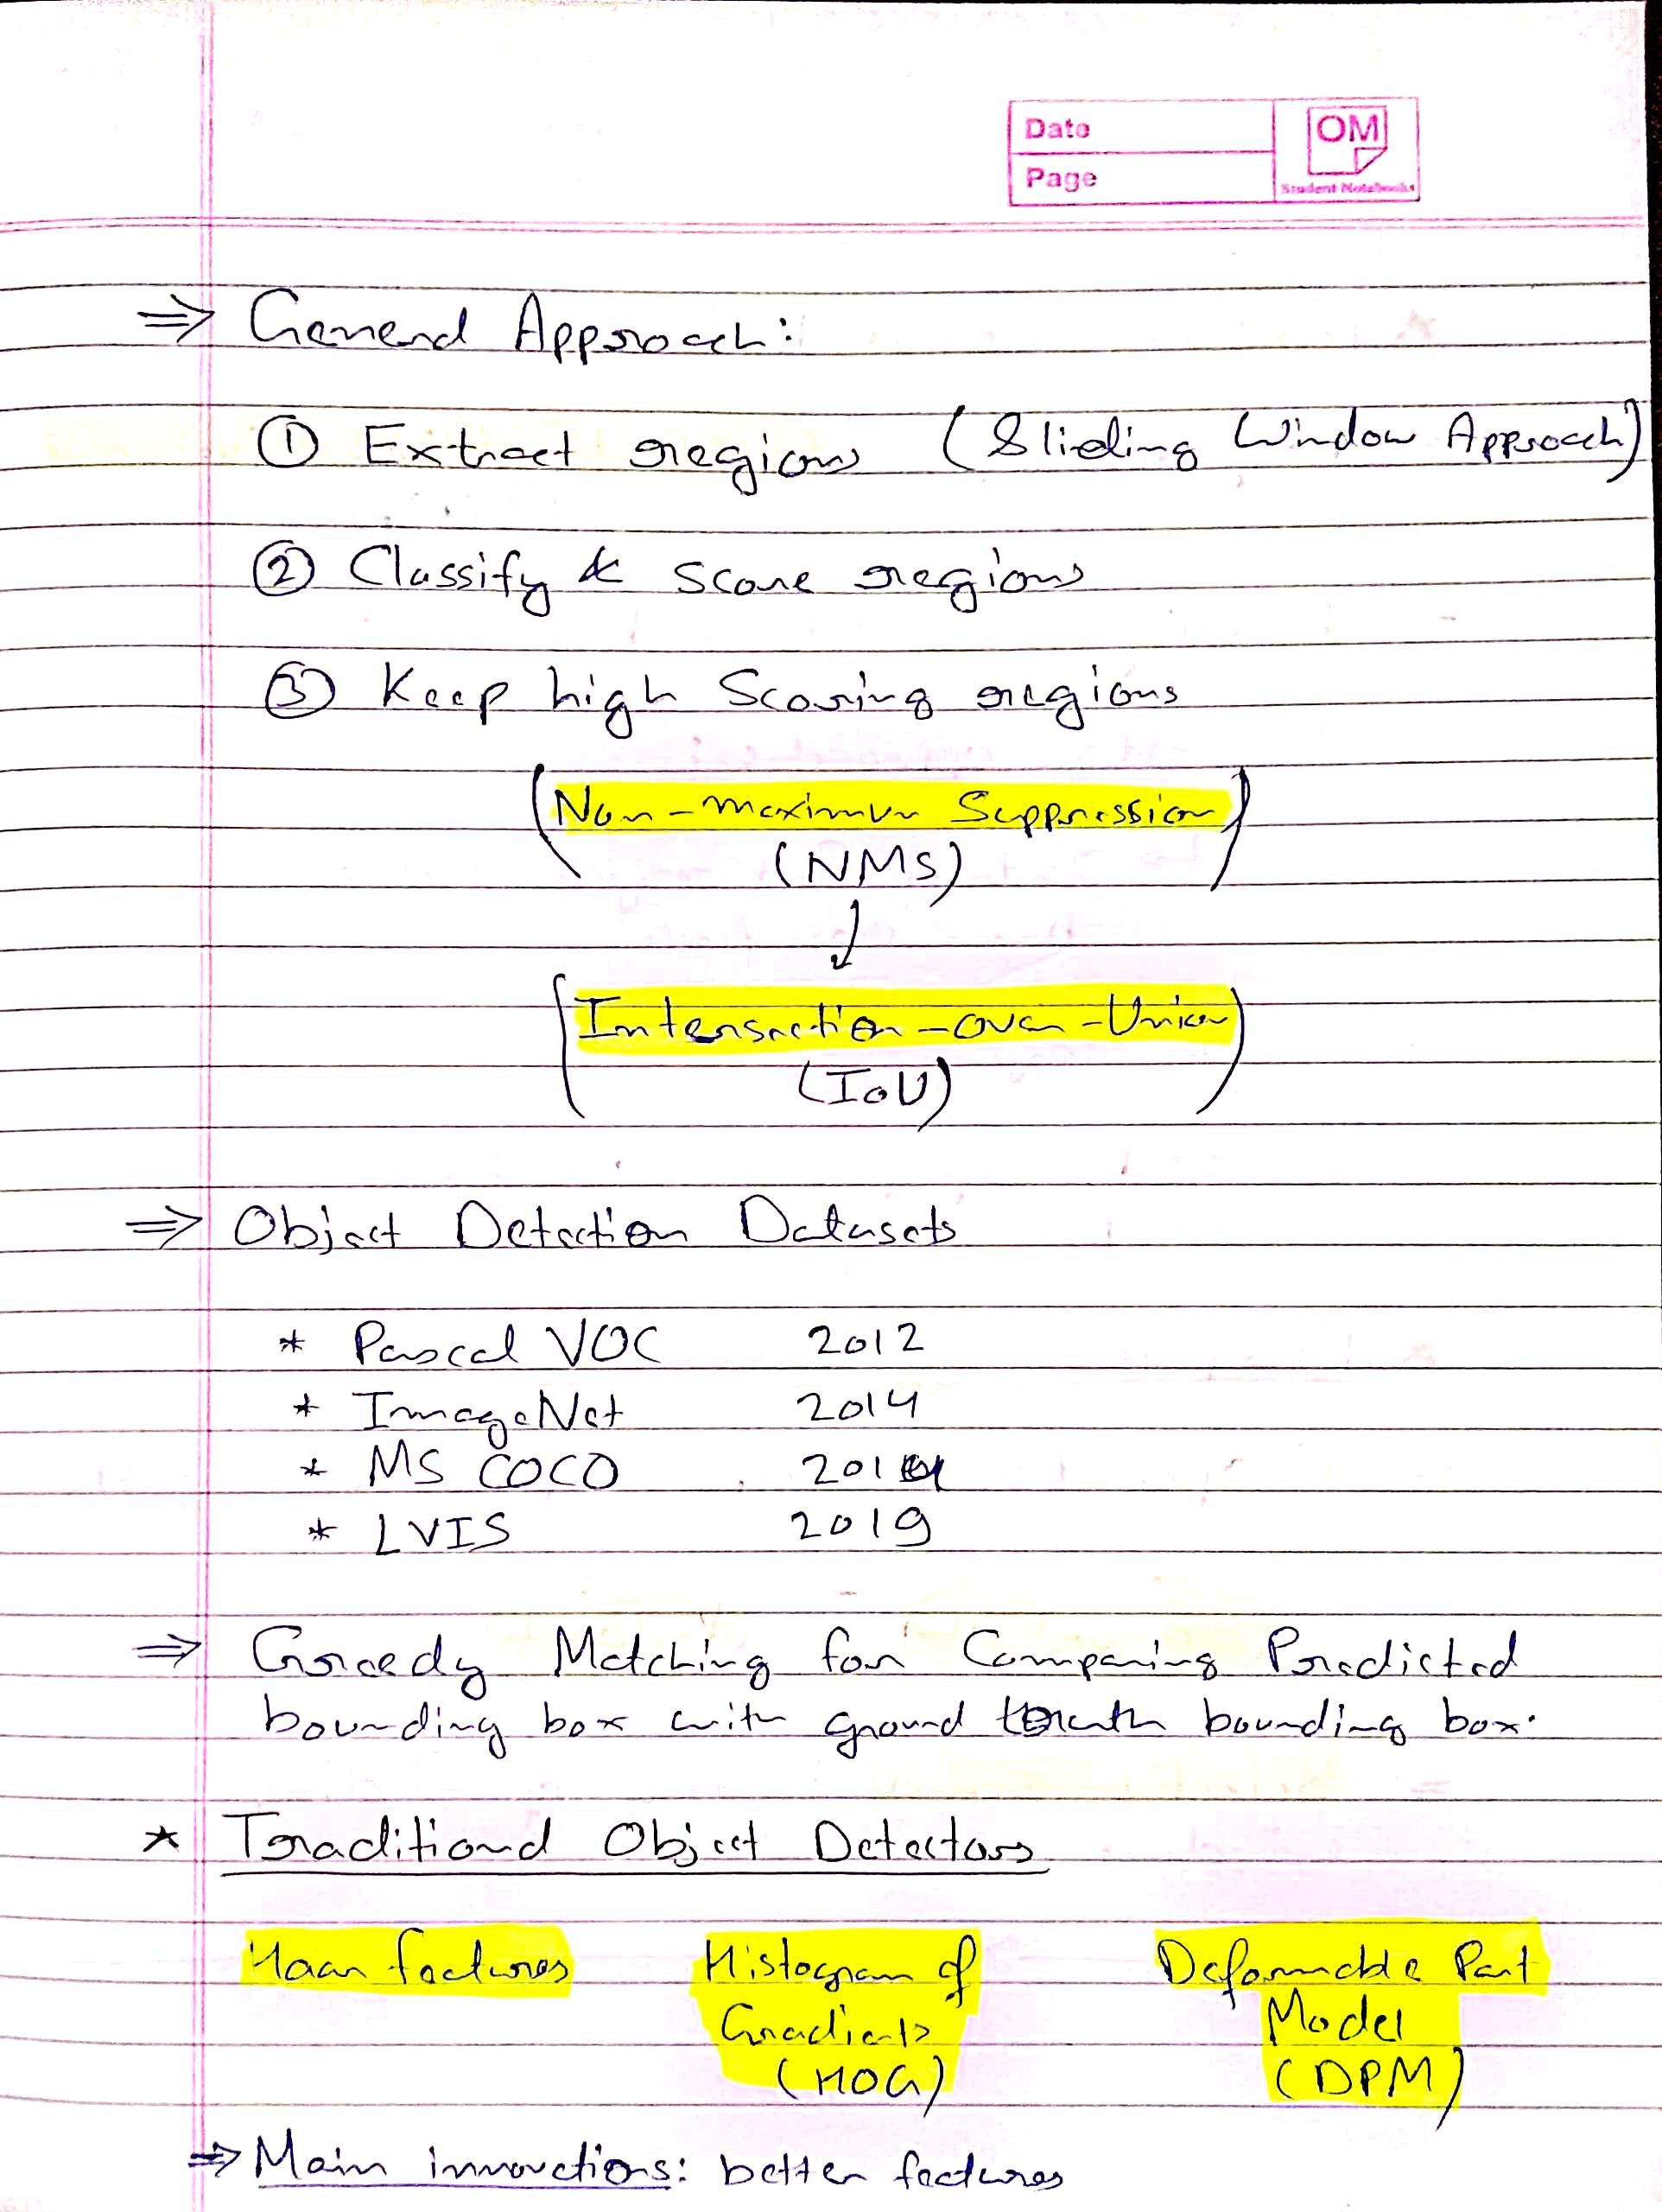 Date
Page
OM
Student Notebooks
⇒ General Approach:
① Extract regions (Sliding Window Approach)
② Classify & Score regions
③ Keep high Scoring regions
(Non-maximum Suppression)
(NMS)
↓
(Intersection-over-Union)
(IoU)
⇒ Object Detection Datasets
* Pascal VOC 2012
* ImageNet 2014
* MS COCO 2014
* LVIS 2019
⇒ Greedy Matching for Comparing Predicted
bounding box with ground truth bounding box.
* Traditional Object Detectors
Haar features Histogram of Deformable Part
Gradients Model
(HOG) (DPM)
⇒ Main innovations: better features